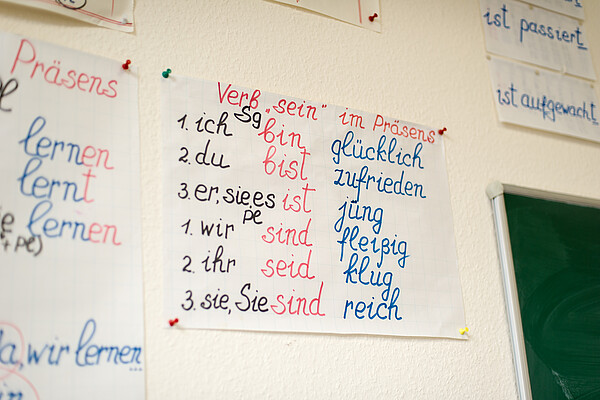 Präsens
lernen
lernt
lernen
+ Pl)
wir lernen
Verb „sein" im Präsens
Sg
1. ich bin glücklich
2. du bist zufrieden
3. er, sie, es ist jüng
pe
1. wir sind fleißig
2. ihr seid klug
3. sie, Sie sind reich
ist passiert
ist aufgewacht